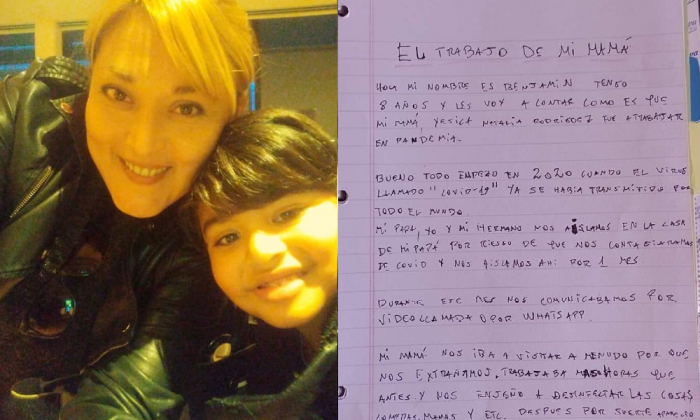 EL TRABAJO DE MI MAMÁ
HOLA MI NOMBRE ES BENJAMIN TENGO
8 AÑOS Y LES VOY A CONTAR COMO ES QUE
MI MAMÁ, YESICA NATALIA RODRIGUEZ FUE A TRABAJAR
EN PANDEMIA.
BUENO TODO EMPEZO EN 2020 CUANDO EL VIRUS
LLAMADO "COVID-19" YA SE HABIA TRANSMITIDO POR
TODO EL MUNDO.
MI PAPA, YO Y MI HERMANO NOS AISLAMOS EN LA CASA
DE MI PAPÁ POR RIESGO DE QUE NOS CONTAGIARAMOS
DE COVID Y NOS AISLAMOS AHI POR 1 MES
DURANTE ESE MES NOS COMUNICABAMOS POR
VIDEOLLAMADA O POR WHATSAPP.
MI MAMÁ NOS IBA A VISITAR A MENUDO POR QUE
NOS EXTRAÑAMOS, TRABAJABA MAS HORAS QUE
ANTES. Y NOS ENSEÑO A DESINFECTAR LAS COSAS
COMPRAS, MANOS Y ETC. DESPUES POR SUERTE